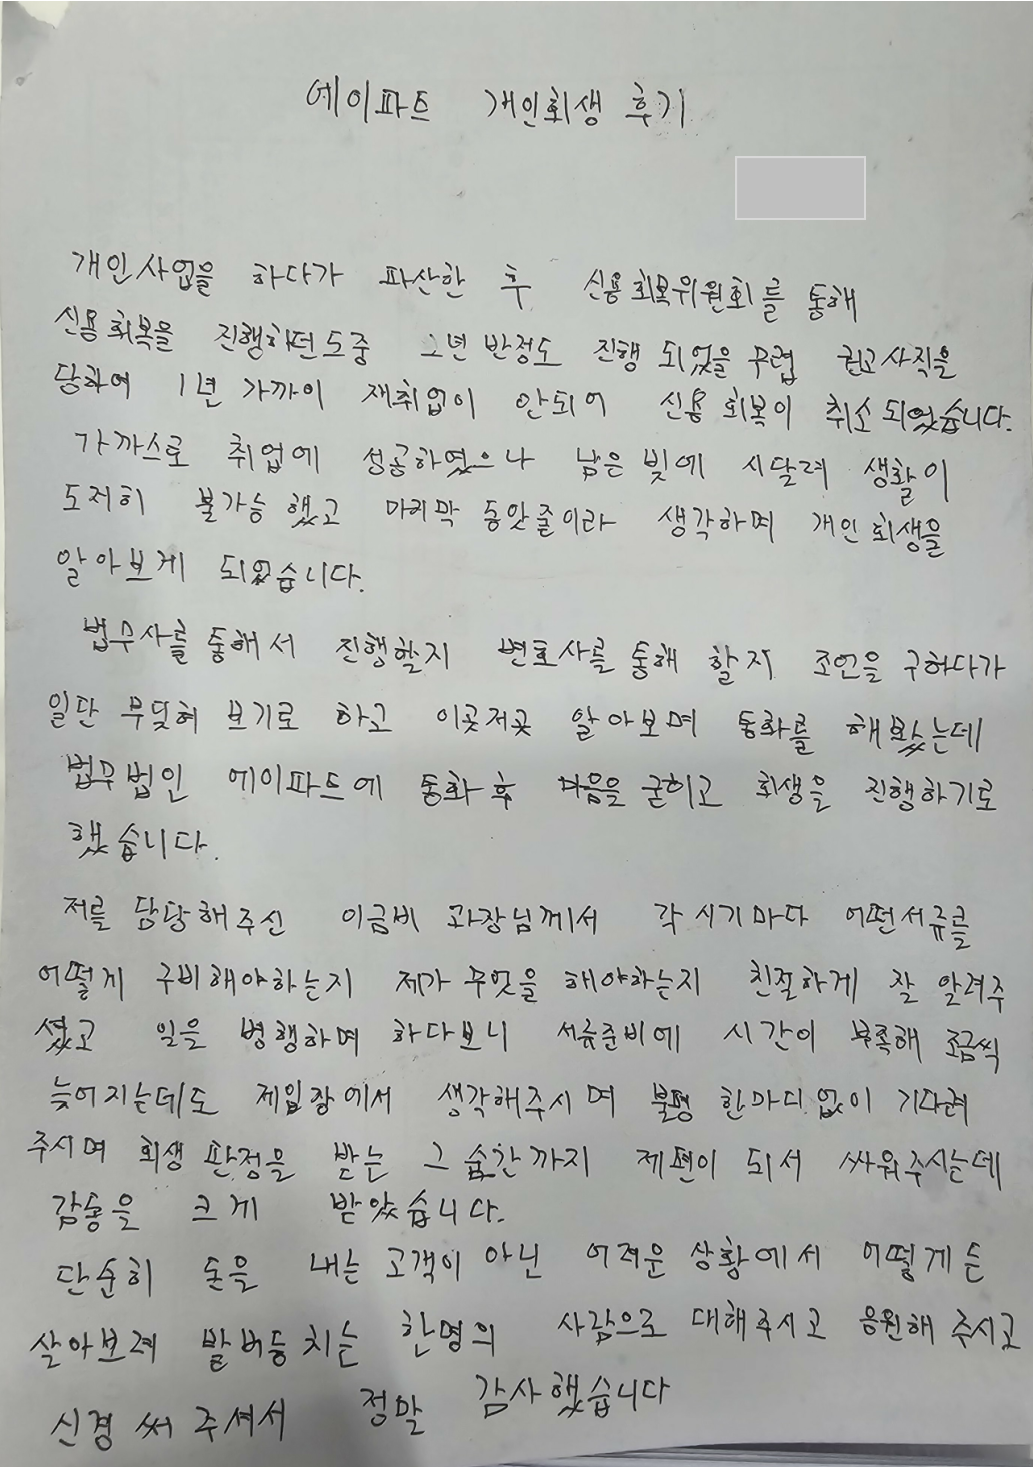 에이파트 개인회생 후기
개인사업을 하다가 파산한 후 신용회복위원회를 통해
신용회복을 진행하던도중 2년 반정도 진행 되었을 무렵 권고사직을
당하여 1년 가까이 재취업이 안되어 신용회복이 취소되었습니다.
가까스로 취업에 성공하였으나 남은 빚에 시달려 생활이
도저히 불가능했고 마지막 동앗줄이라 생각하며 개인회생을
알아보게 되었습니다.
법무사를 통해서 진행할지 변호사를 통해 할지 조언을 구하다가
일단 부딪혀 보기로 하고 이곳저곳 알아보며 통화를 해봤는데
법무법인 에이파트에 통화 후 마음을 굳히고 회생을 진행하기로
했습니다.
저를 담당해주신 이금비 과장님께서 각 시기마다 어떤서류를
어떻게 구비해야하는지 제가 무엇을 해야하는지 친절하게 잘 알려주
셨고 일을 병행하며 하다보니 서류준비에 시간이 부족해 조금씩
늦어지는데도 제입장에서 생각해주시며 불평 한마디없이 기다려
주시며 회생 판정을 받는 그 순간까지 제편이 되서 싸워주시는데
감동을 크게 받았습니다.
단순히 돈을 내는 고객이 아닌 어려운 상황에서 어떻게든
살아보려 발버둥치는 한명의 사람으로 대해주시고 응원해주시고
신경써주셔서 정말 감사했습니다